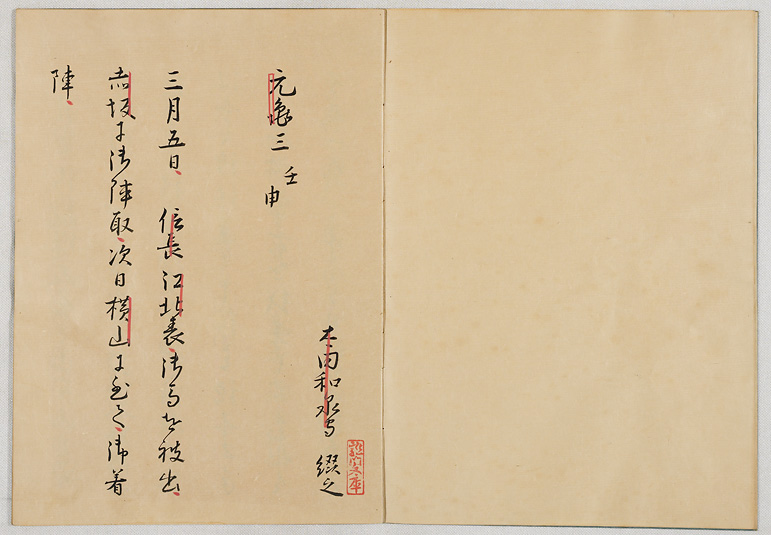 太田和泉守 綴之
元亀三 壬申
三月五日 信長江北表御馬を被出
赤坂に御陣取次日横山に至て御着
陣